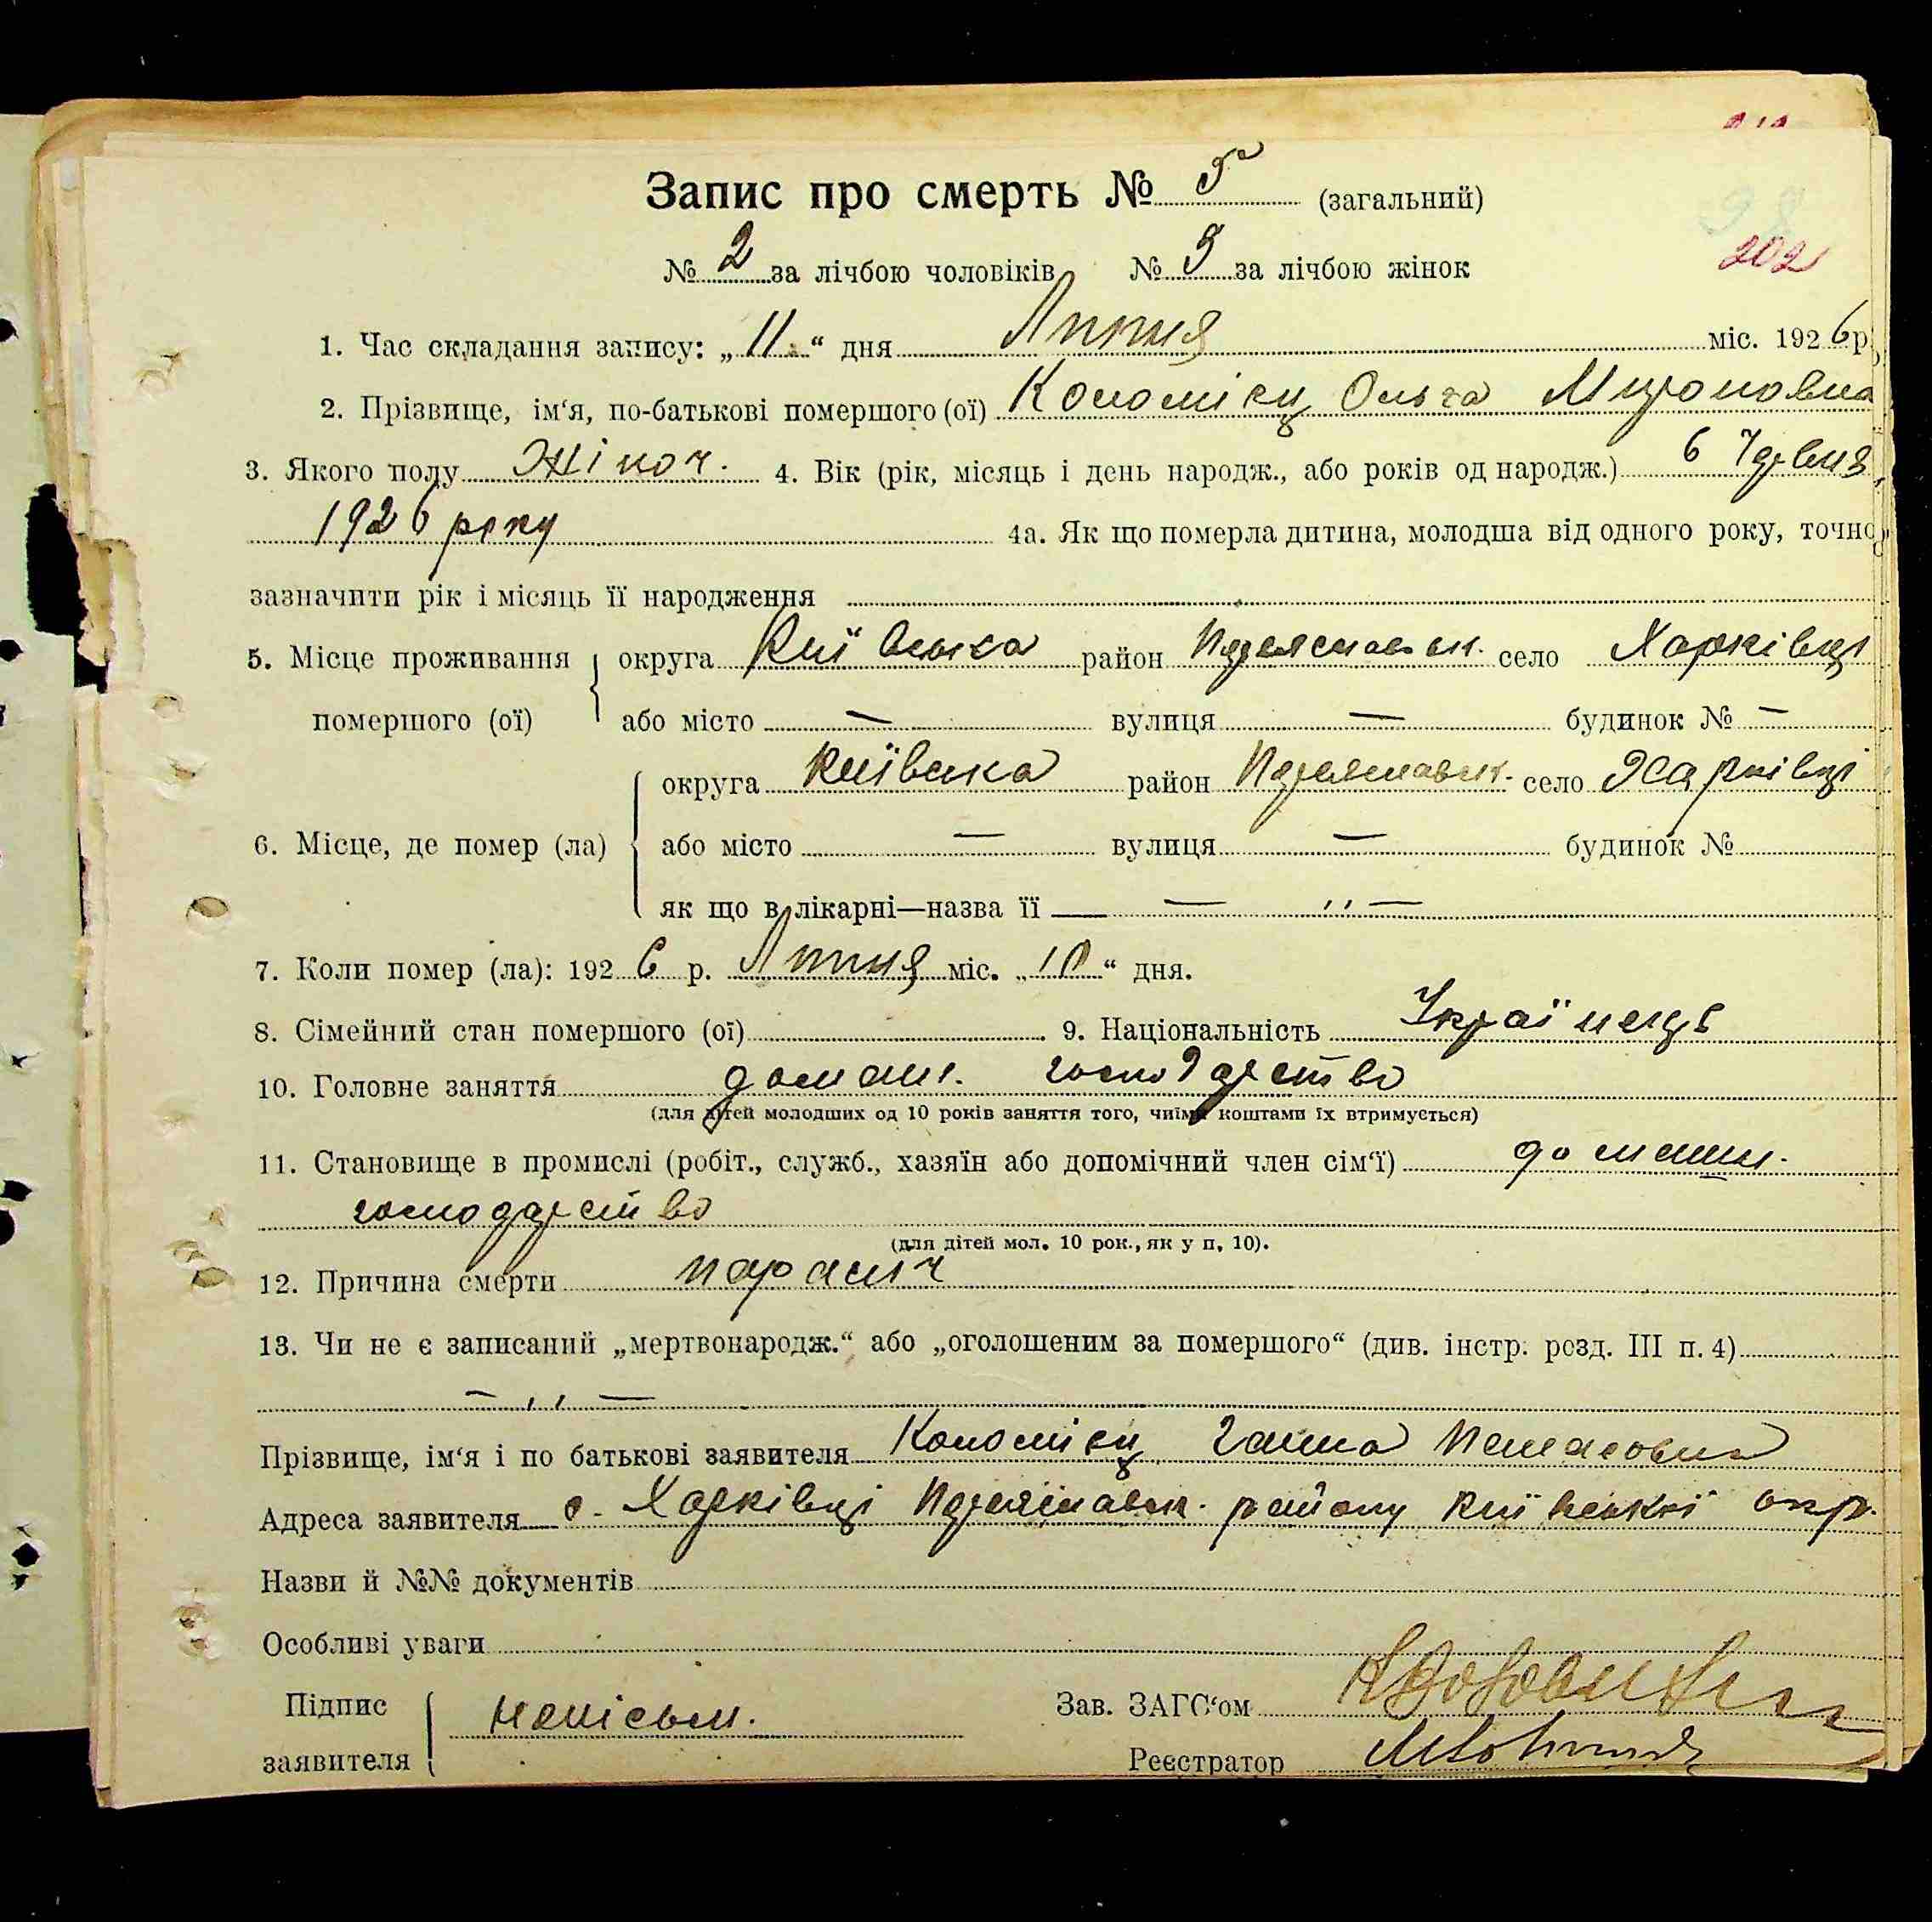 Запис про смерть № 5 (загальний)
202
№ 2 за лічбою чоловіків № 3 за лічбою жінок
1. Час складання запису: „11.“ дня Липня міс. 1926 р.
2. Прізвище, ім‘я, по-батькові помершого (ої) Коломієц Ольга Мироновна
3. Якого полу Жіноч. 4. Вік (рік, місяць і день народж., або років од народж.) 6 Червня
1926 року 4а. Як що померла дитина, молодша від одного року, точно
зазначити рік і місяць її народження
5. Місце проживання округа Київська район Переяславськ. село Харківці
помершого (ої) або місто — вулиця — будинок № —
округа Київська район Переяславськ. село Харківці
6. Місце, де помер (ла) або місто — вулиця — будинок №
як що в лікарні—назва її — „ —
7. Коли помер (ла): 1926 р. Липня міс. „10“ дня.
8. Сімейний стан помершого (ої) 9. Національність Українець
10. Головне заняття домашн. господарство
(для дітей молодших од 10 років заняття того, чиїми коштами їх втримується)
11. Становище в промислі (робіт., служб., хазяїн або допомічний член сім‘ї) домашн.
господарство
(для дітей мол. 10 рок., як у п. 10).
12. Причина смерти параліч
13. Чи не є записаний „мертвонародж.“ або „оголошеним за помершого“ (див. інстр. розд. III п. 4)
— „ —
Прізвище, ім‘я і по батькові заявителя Коломієц Ганна
Адреса заявителя с. Харківці Переяславськ. району Київської окр.
Назви й №№ документів
Особливі уваги
Підпис неписьм. Зав. ЗАГС‘ом
заявителя Реєстратор